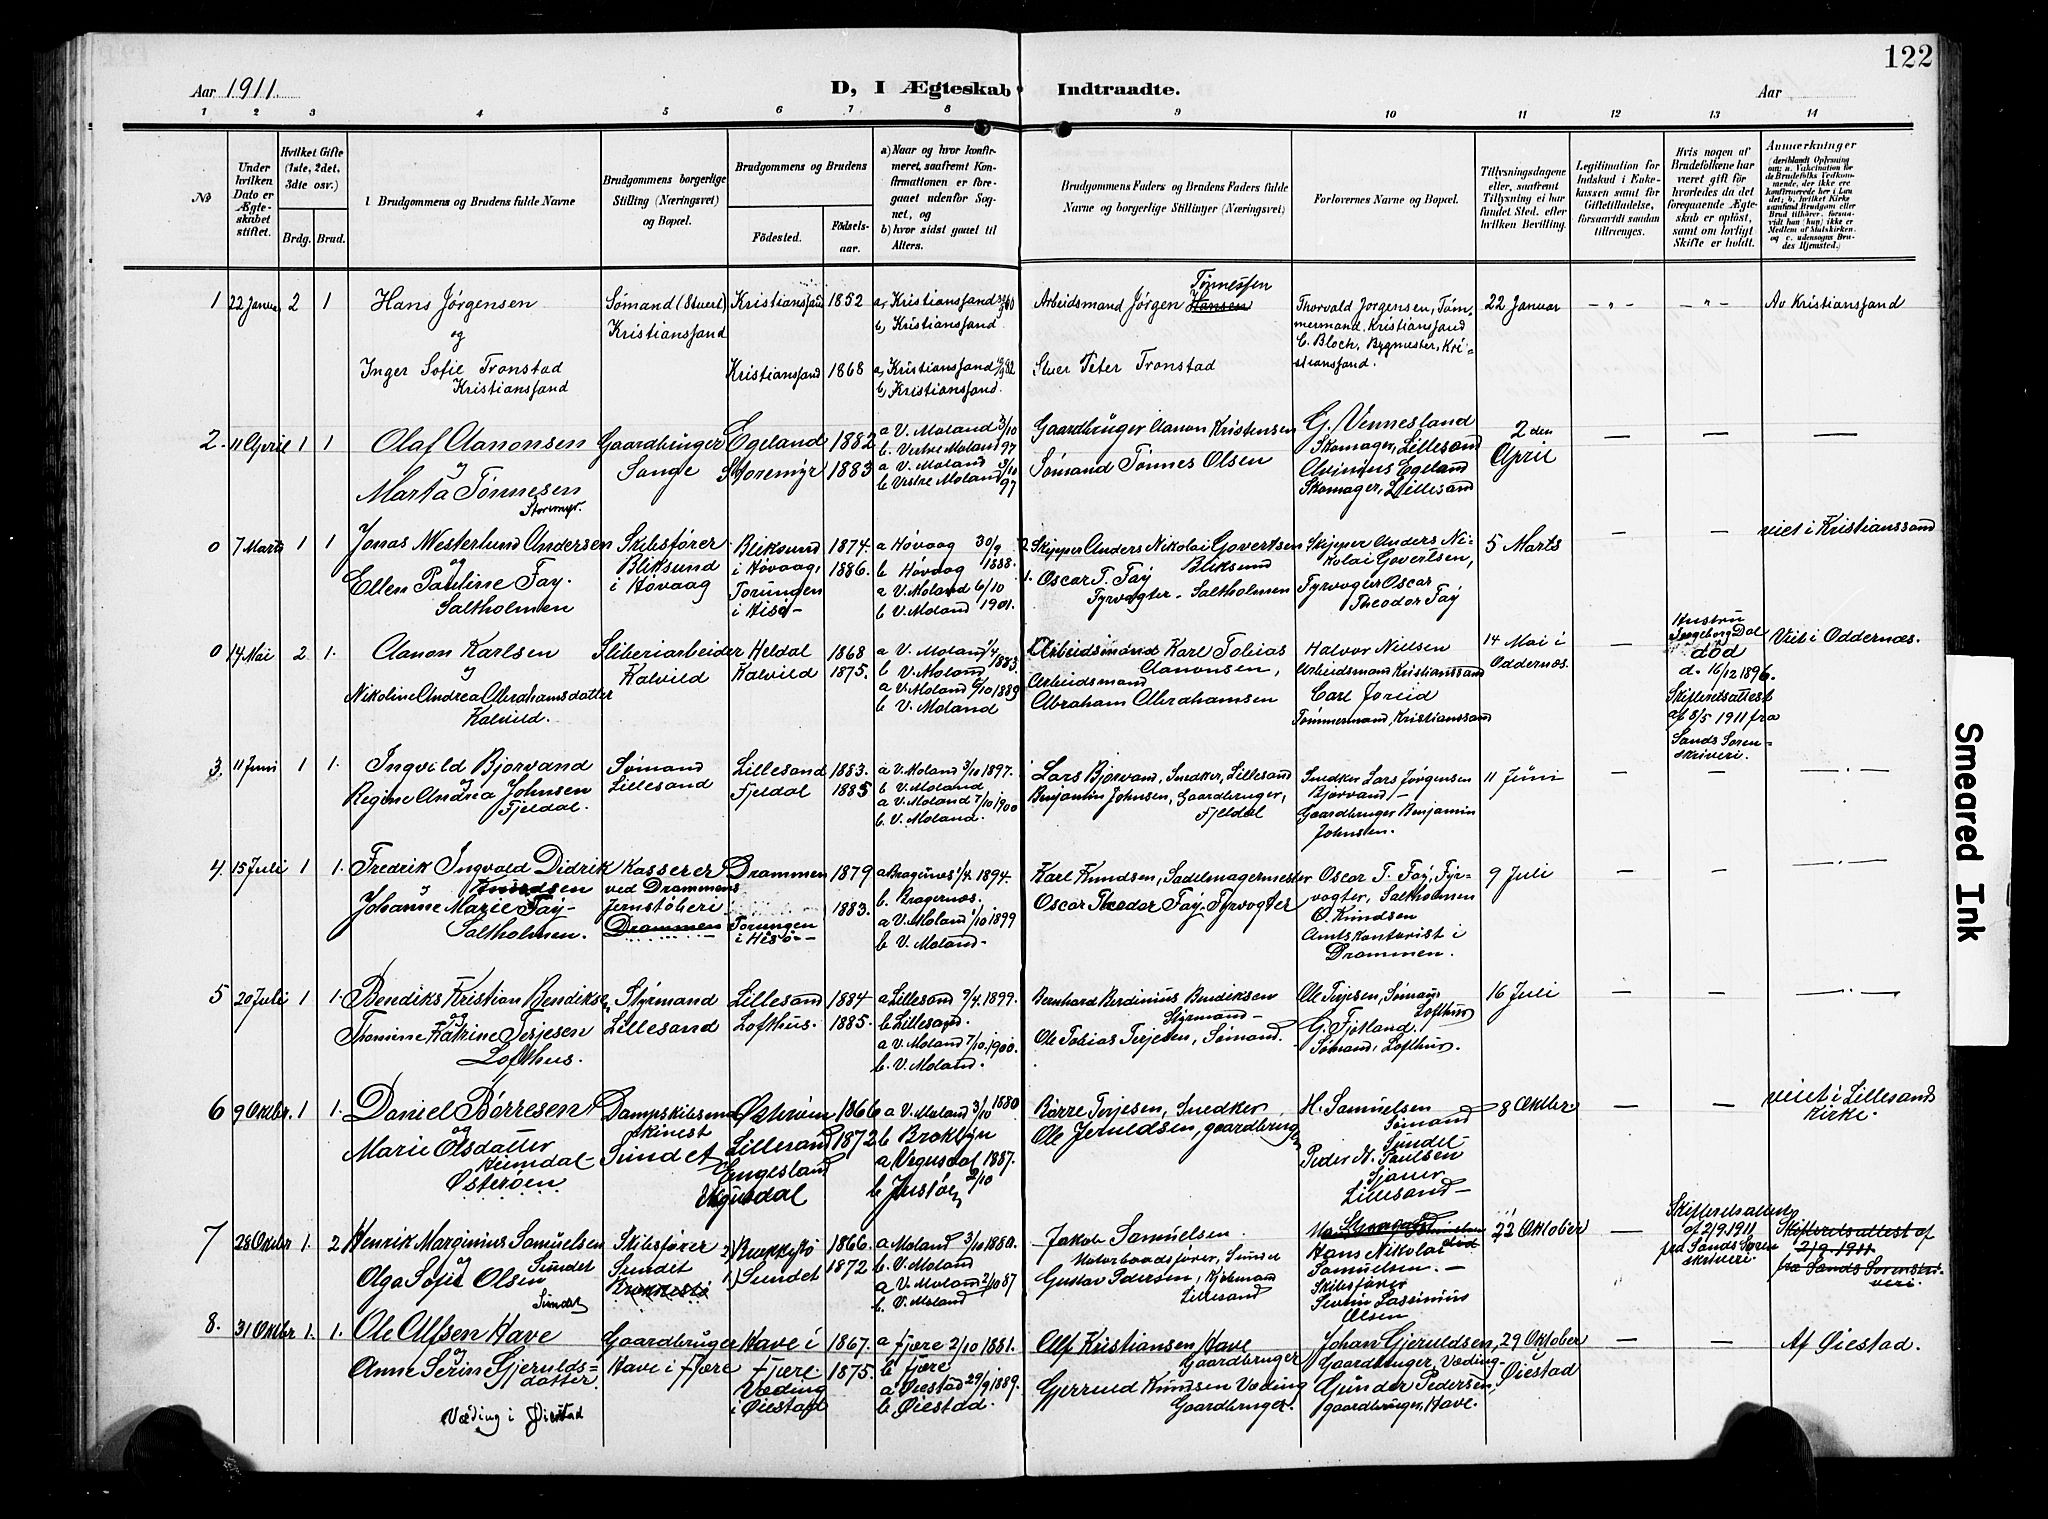 122
Aar 1911.
D, I Ægteskab Indtraadte.
Aar
1 2 3 4 5 6 7 8 9 10 11 12 13 14
№
Under hvilken Dato er Ægteskabet stiftet.
Hvilket Gifte (1ste, 2det, 3dte osv.)
Brdg. Brud.
Brudgommens og Brudens fulde Navne
Brudgommens borgerlige Stilling (Næringsvei) og Bopæl.
Brudgommens og Brudens
Fødested.
Fødselsaar.
a) Naar og hvor konfirmeret, saafremt Konfirmationen er foregaaet udenfor Sognet, og
b) hvor sidst gaaet til Alters.
Brudgommens Faders og Brudens Faders fulde Navne og borgerlige Stillinger (Næringsvei)
Forlovernes Navne og Bopæl.
Tillysningsdagene eller, saafremt Tillysning ei har fundet Sted, efter hvilken Bevilling.
Legitimation for Indskud i Enkekassen samt for Giftetilladelse, forsaavidt saadan tiltrænges.
Hvis nogen af Brudefolkene har været gift før hvorledes da det foregaaende Ægteskab er opløst, samt om lovligt Skifte er holdt.
Anmerkninger
1 22 Januar 2 1
Hans Jørgensen
og
Inger Sofie Tronstad
Kristianssand
Sømand (Stuert)
Kristianssand
Kristianssand 1852
Kristianssand 1868
a, Kristianssand
b, Kristianssand
a, Kristianssand
b, Kristianssand.
Arbeidsmand Jörgen Hansen Tønnessen
Stuer Peter Tronstad
Thorvald Jorgensen, Tømmermand, Kristianssand
C. Bloch, Bygmester, Kristianssand.
22 Januar
Av Kristianssand
2 11 April 1 1
Olaf Aanonsen
og
Marta Tönnesen
Storemyr.
Gaardbruger
Sange
Egeland 1882
Storemyr 1883
a V. Moland 3/10
b. Vestre Moland 97
a V. Moland 3/10
b Vestre Moland 97
Gaardbruger Aanon Kristensen
Sømand Tønnes Olsen
G. Vennesland
Skomager, Lillesand
Egeland
Skomager, Lillesand
2 den
April
0 7 Marts 1 1
Jonas Westerlund Andersen
og
Ellen Pauline Fay.
Saltholmen
Skibsfører
Bliksund
i Høvaag
Bliksund i Høvaag, 1874.
Torungen i Hisø 1886.
a Høvaag 30/9
b Høvaag 1888.
a V. Moland 6/10
b V. Moland 1901.
Skipper Anders Nikolai Govertsen
Bliksund
Oscar T. Fay
Fyrvogter - Saltholmen
Skipper Anders Nikolai Govertsen,
Fyrvogter Oscar
Theodor Fay
5 Marts
viet i Kristianssand
0 14 Mai 2 1.
Aanon Karlsen
og
Nikoline Andrea Abrahamsdatter
Kalvild.
Sliberiarbeider
Kalvild
Heldal 1868
Kalvild 1875.
a V. Moland 1/4 1883.
b V. Moland
a V. Moland 6/10 1889
b V. Moland
Arbeidsmand Karl Tobias
Aanonsen,
Arbeidsmand
Abraham Abrahamsen
Halvor Nielsen
Arbeidsmand Kristianssand
Carl Joreid
Tømmermand, Kristianssand
14 Mai i
Oddernæs.
Hustru
Ingeborg Dal
död
d. 16/12 1896.
Skifteretsattest
af 8/5 1911 fra
Sands Sorenskriveri.
Viet i Oddernæs.
3. 11 Juni 1 1.
Ingvild Bjorvand
og
Regine Andrea Johnsen
Fjeldal.
Sømand
Lillesand
Lillesand 1883.
Fjeldal 1885
a V. Moland 3/10 1897.
b V. Moland
a V. Moland 7/10 1900
b. V. Moland.
Lars Bjorvand, Snedker, Lillesand
Benjamin Johnsen, Gaardbruger,
Fjeldal
Snedker Lars Jørgensen
Bjorvand
Gaardbruger Benjamin
Johnsen.
11 Juni
4. 15 Juli 1 1.
Fredrik Ingvald Didrik
Knudsen
og
Johanne Marie Fay-
Saltholmen.
Kasserer
ved Drammens
Jernstøberi
Drammen
Drammen 1879
Torungen i Hisø 1883.
a Bragernes 1/4. 1894.
b. Bragernes.
a V. Moland 1/10 1899
b V. Moland
Karl Knudsen, Sadelmagermester
Oscar Theodor Fay, Fyrvogter
Oscar T. Fay, Fyrvogter, Saltholmen
O. Knudsen
Amtskontorist i
Drammen.
9 Juli
5 20 Juli 1 1.
Bendiks Kristian Bendiksen
og
Thomine Katrine Terjesen
Lofthus.
Styrmand
Lillesand
Lillesand 1884
Lofthus. 1885.
a Lillesand 9/4. 1899.
b Lillesand.
a V. Moland 7/10. 1900.
b. V. Moland.
Bernhard Berdinius Bendiksen
Styrmand
Ole Tobias Terjesen, Sømand.
Ole Terjesen, Sømand
Lofthus
G. Fjotland.
Sømand, Lofthus.
16 Juli
6 9 Oktbr. 1 1.
Daniel Børresen
og
Marie Olsdatter
Heimdal
Østerøen
Sundet
Østerøen 1866
Lillesand 1872
Engesland
Vegusdal
a V. Moland 3/10 1880
b Broklyn
a Vegusdal 1887.
b Justø
Børre Terjesen, Snedker
Ole Jeruldsen, gaardbruger
H. Samuelsen
Sømand
Sundet
Peder N. Paulsen
Lillesand
8 Oktbr.
viet i Lillesand
Kirke.
7 28 Oktbr 1. 2
Henrik Marginius Samuelsen
Sundet
Olga Sofie Olsen
Sundet
Skibsfører
Sundet
Krokkestø
2) Krokkestø 1866.
1) Sundet 1872
a Moland 3/10 1880.
b. V. Moland
a V. Moland 2/10 87
b. V. Moland
Jakob Samuelsen.
Motorbaadsfører, Sundet
Gustav Pedersen, Kjøbmand
Lillesand
Hans Nikolai
Samuelsen.
Skibsfører
Severin Lassinius
Olsen
22 Oktober
Skifteretsattest
af 2/9 1911,
fra Sands Sorenskriveri.
Skifteretsattest af
2/9 1911
fra Sands Sorenskriveri.
8. 31 Oktbr 1. 1.
Ole Alfsen Have
og
Anne Serine Gjeruldsdatter.
Væding i Øiestad
Gaardbruger
Have i Fjære
Have i Fjære. 1867.
Væding i Øiestad 1875.
a Fjære 2/10 1881.
b Fjære
a Øiestad 29/9 1889.
b Øiestad.
Alf Kristiansen, Have
Gaardbruger
Gjerruld Knudsen Væding
Gaardbruger.
Johan Gjeruldsen,
Gaardbruger, Væding
Gunder Pedersen,
gaardbruger, Have.
29 Oktober
Øiestad
Af Øiestad.
Smeared Ink